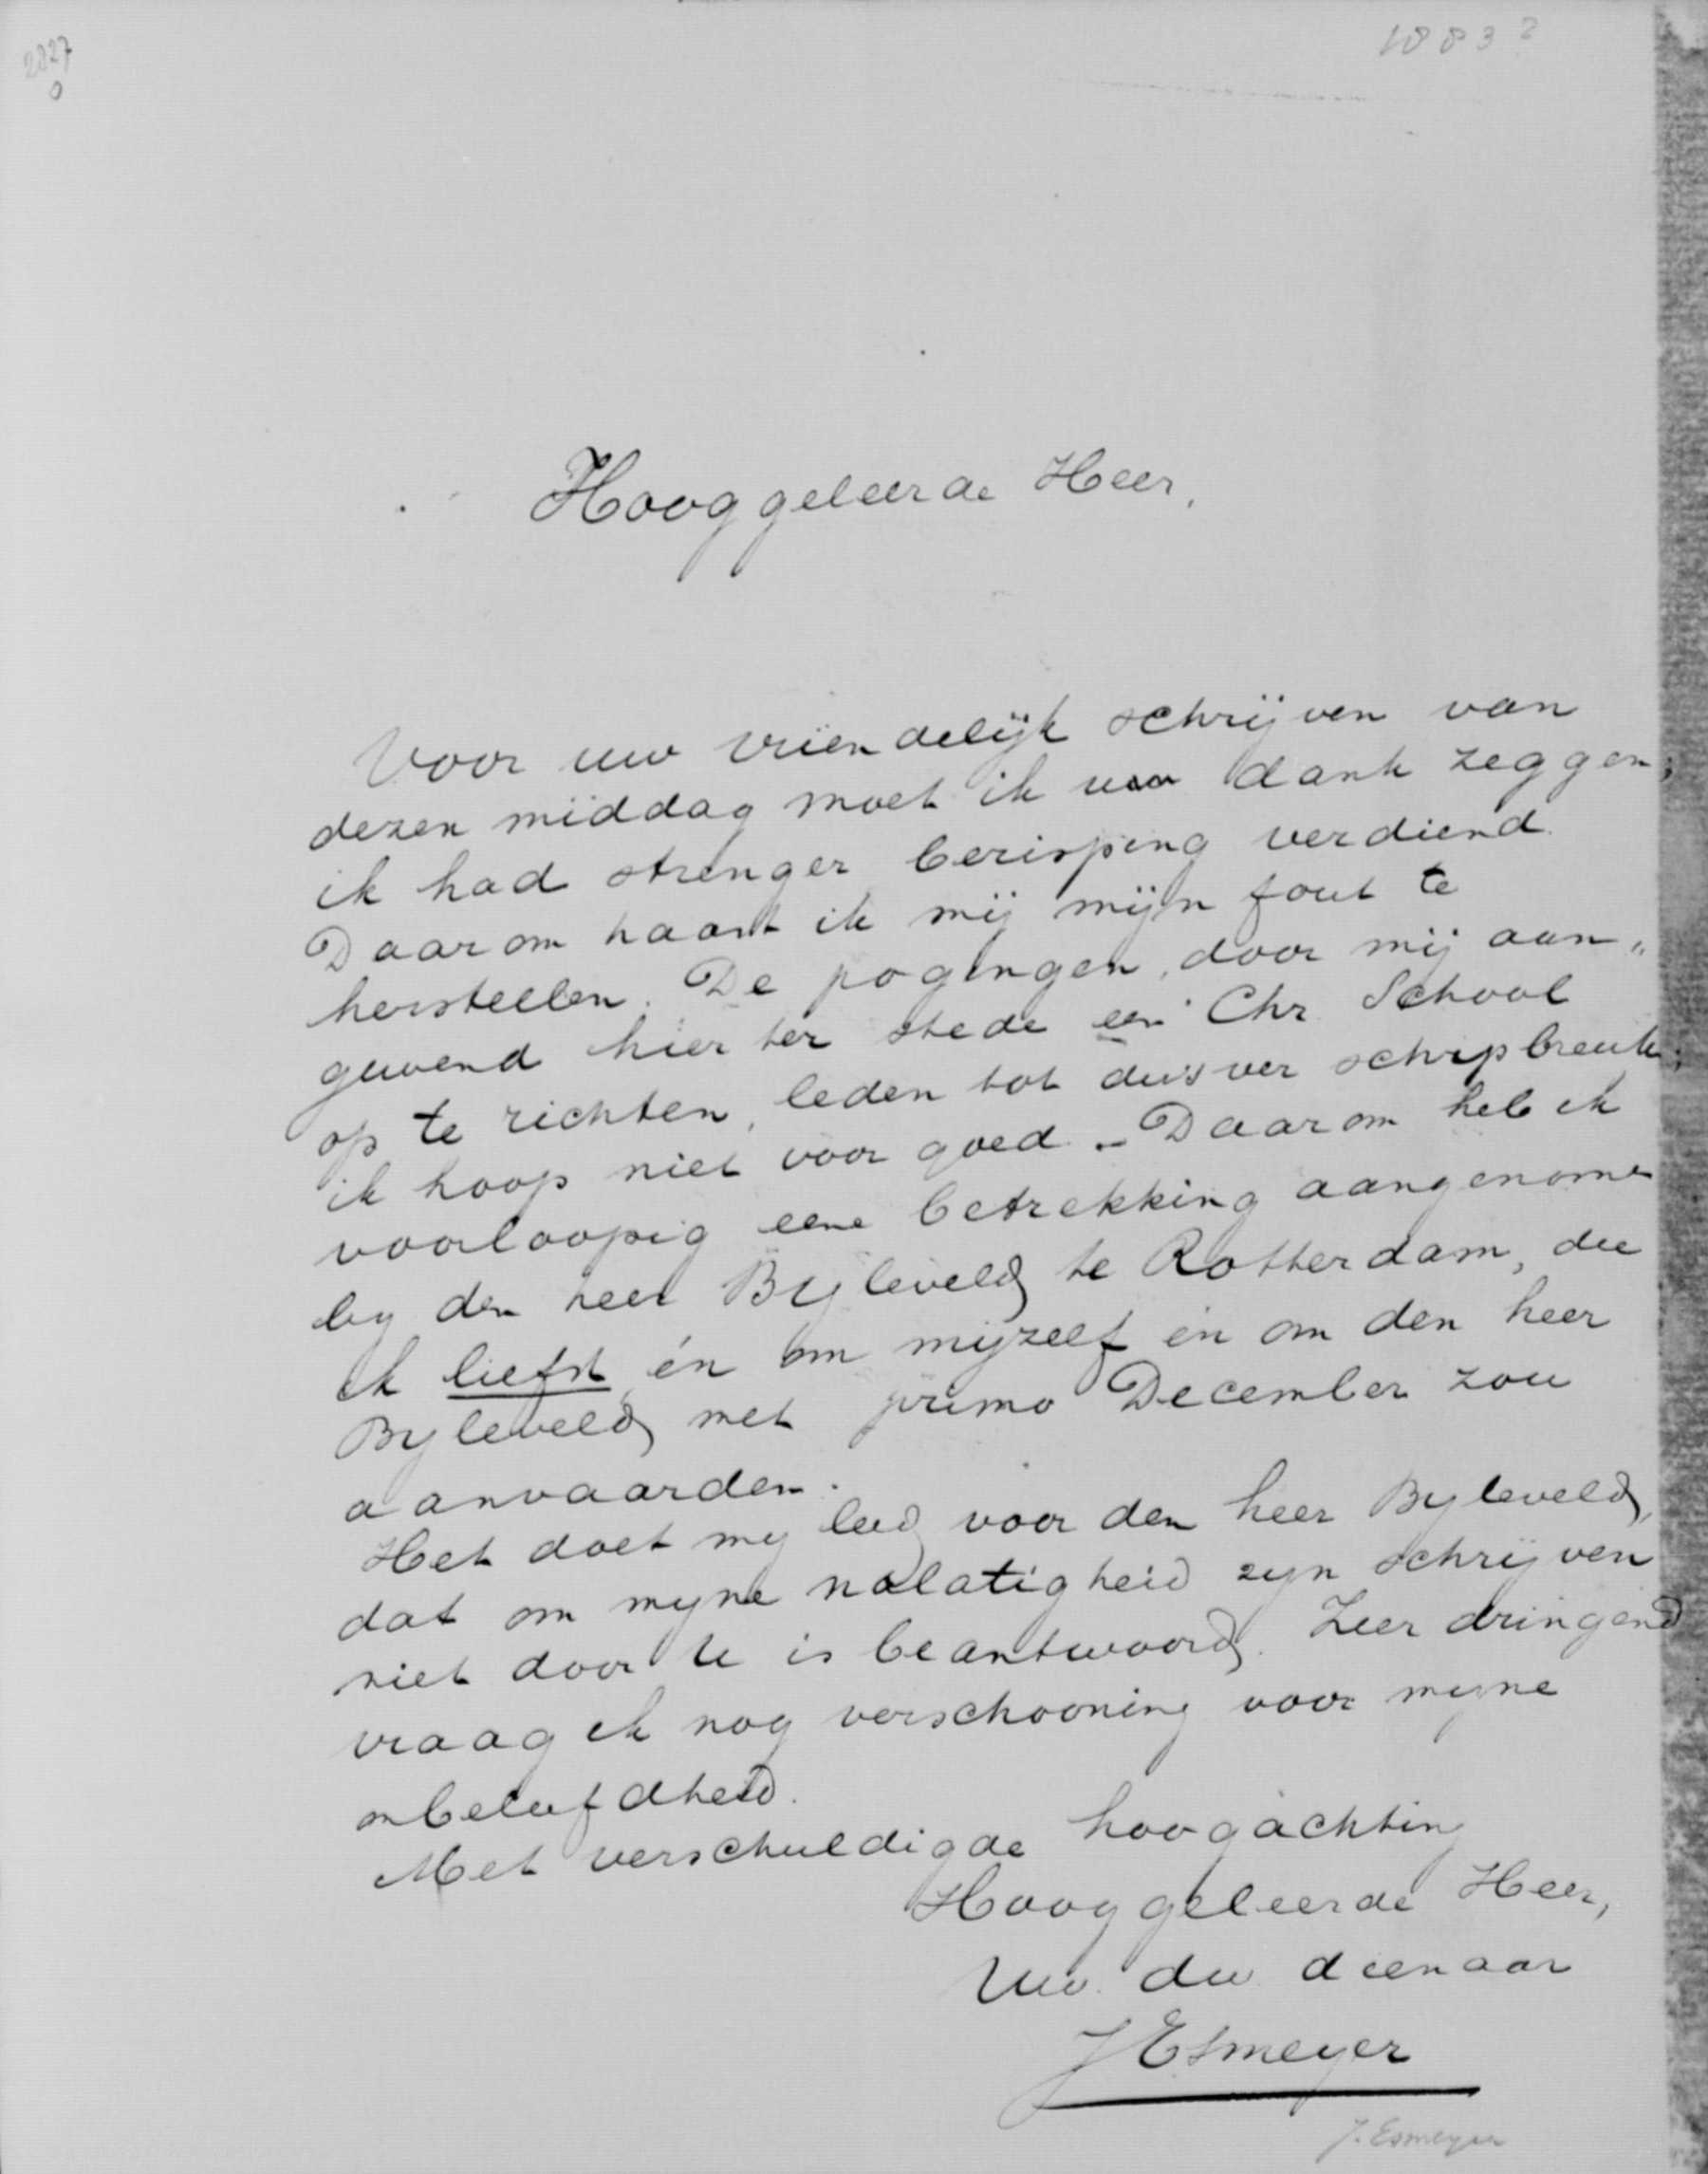 2827
0
1883?
Hooggeleerde Heer,
Voor uw vriendelijk schrijven van
dezen middag moet ik uw dank zeggen;
ik had strenger berisping verdiend.
Daarom haast ik mij mijn fout te
herstellen. De pogingen, door mij aan„
gewend hier ter stede een Chr. School
op te richten, leden tot dusver schipbreuk;
ik hoop niet voor goed. – Daarom heb ik
voorloopig eene betrekking aangenomen
by den heer Byleveld te Rotterdam, die
ik liefst én om mijzelf én om den heer
Byleveld met primo December zou
aanvaarden.
Het doet my leed voor den heer Byleveld,
dat om myne nalatigheid zyn schrijven
niet door U is beantwoord. Zeer dringend
vraag ik nog verschooning voor myne
onbeleefdheid.
Met verschuldigde hoogachting
Hooggeleerde Heer,
Uw. dw. dienaar
J Esmeyer
J. Esmeyer